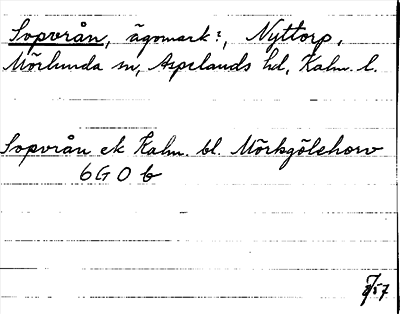 Sopvrån, ägomark?, Nyttorp,
Mörlunda sn, Aspelands hd, Kalm. l.
Sopvrån ek Kalm. bl. Mörkgölehorv
6 G O b
57